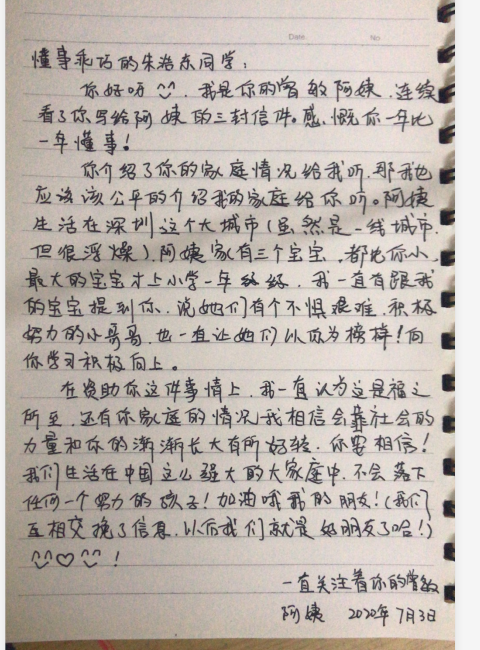 Date
No
懂事乖巧的朱浩东同学：
你好呀，我是你的曾敏阿姨，连续
看了你写给阿姨的三封信件。感慨你一年比
一年懂事！
你介绍了你的家庭情况给我听，那我也
应该该公平的介绍我的家庭给你听。阿姨
生活在深圳这个大城市（虽然是一线城市，
但很浮燥），阿姨家有三个宝宝，都比你小，
最大的宝宝才上小学一年级，我一直有跟我
的宝宝提到你，说她们有个不惧艰难，积极
努力的小哥哥，也一直让她们以你为榜样！向
你学习积极向上。
在资助你这件事情上，我一直认为这是福之
所至，还有你家庭的情况我相信会靠社会的
力量和你的渐渐长大有所好转，你要相信！
我们生活在中国这么强大的大家庭中，不会落下
任何一个努力的孩子！加油哦我的朋友！（我们
互相交换了信息，以后我们就是好朋友了哈！）
♡！
一直关注着你的曾敏
阿姨 2020年7月3日